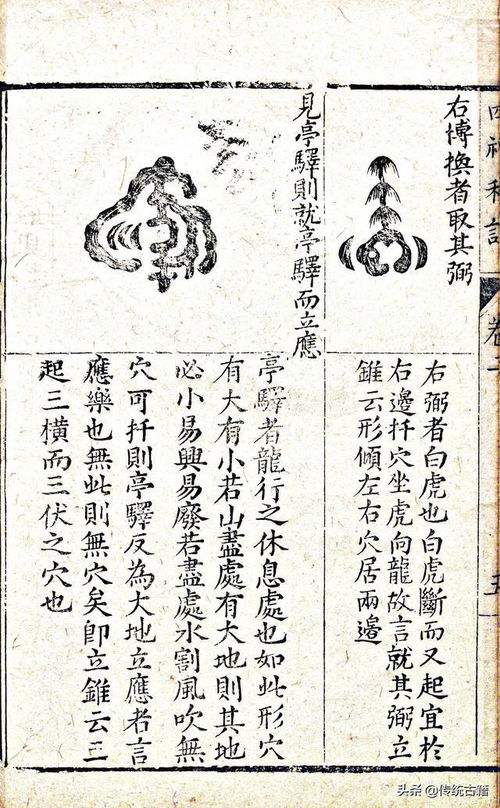 右博換者取其弼
右弼者白虎也白虎斷而又起宜於
右邊扦穴坐虎向龍故言就其弼立
錐云形傾左右穴居兩邉
見亭驛則就亭驛而立應
亭驛者龍行之休息處也如此形穴
有大有小若山盡處有大地則其地
必小易興易廢若盡處水割風吹無
穴可扦則亭驛反為大地立應者言
應樂也無此則無穴矣卽立錐云三
起三横而三伏之穴也
头条 @传统古籍